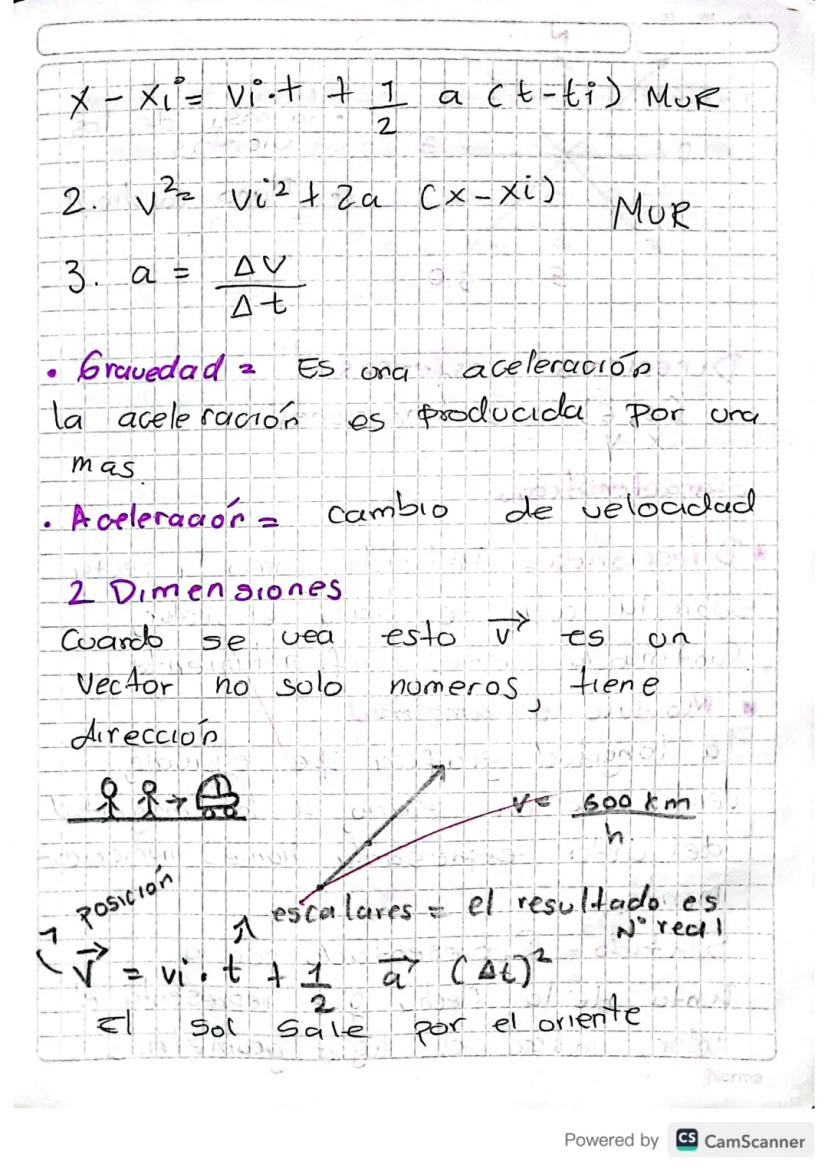 x - xi = vi·t + 1/2 a (t-ti) MUR
2. v²= vi² + 2a (x-xi) MUR
3. a = Δv/Δt
• Gravedad = Es una aceleración
la aceleración es producida por una
mas.
• Aceleración = cambio de velocidad
2 Dimensiones
Cuando se vea esto v⃗ es un
vector no solo numeros, tiene
dirección
v= 600 km/h.
posición
escalares = el resultado es
N° real
v⃗ = vi · t + 1/2 a⃗ (Δt)²
El sol sale por el oriente
Powered by CS CamScanner